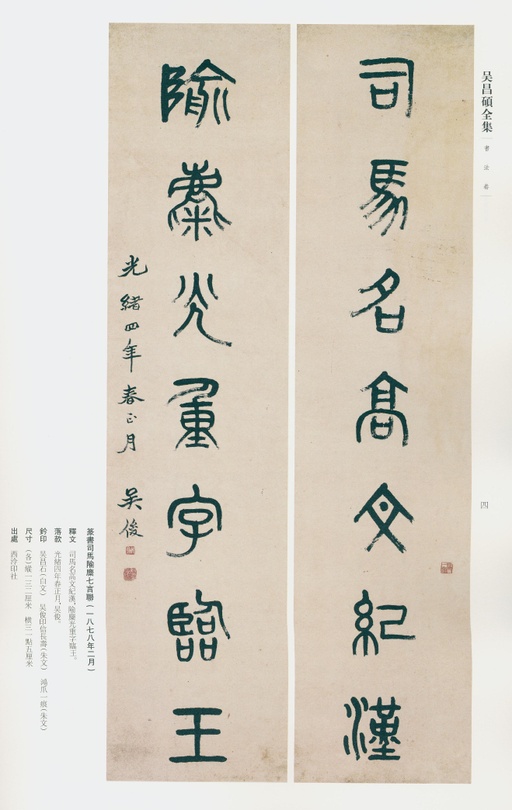 吴昌碩全集
書法卷
四
司馬名高文紀漢
隃麋光重字臨王
光緒四年春正月 吴俊
篆書司馬隃麋七言聯（一八七八年二月）
釋文 司馬名高文紀漢，隃麋光重字臨王。
落款 光緒四年春正月，吴俊。
鈐印 吴昌石（白文） 吴俊印信長壽（朱文） 鴻爪一痕（朱文）
尺寸 （各）縱一三二厘米 橫三一點五厘米
出處 西泠印社